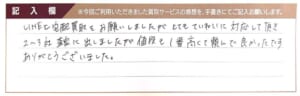 記入欄 ※今回ご利用いただきました買取サービスの感想を、手書きにてご記入お願いします。
LINEで宅配買取をお願いしましたが とてもていねいに対応して頂き
2〜3社 査定に出しましたが 値段も1番高くて頼んで良かったです
ありがとうございました。